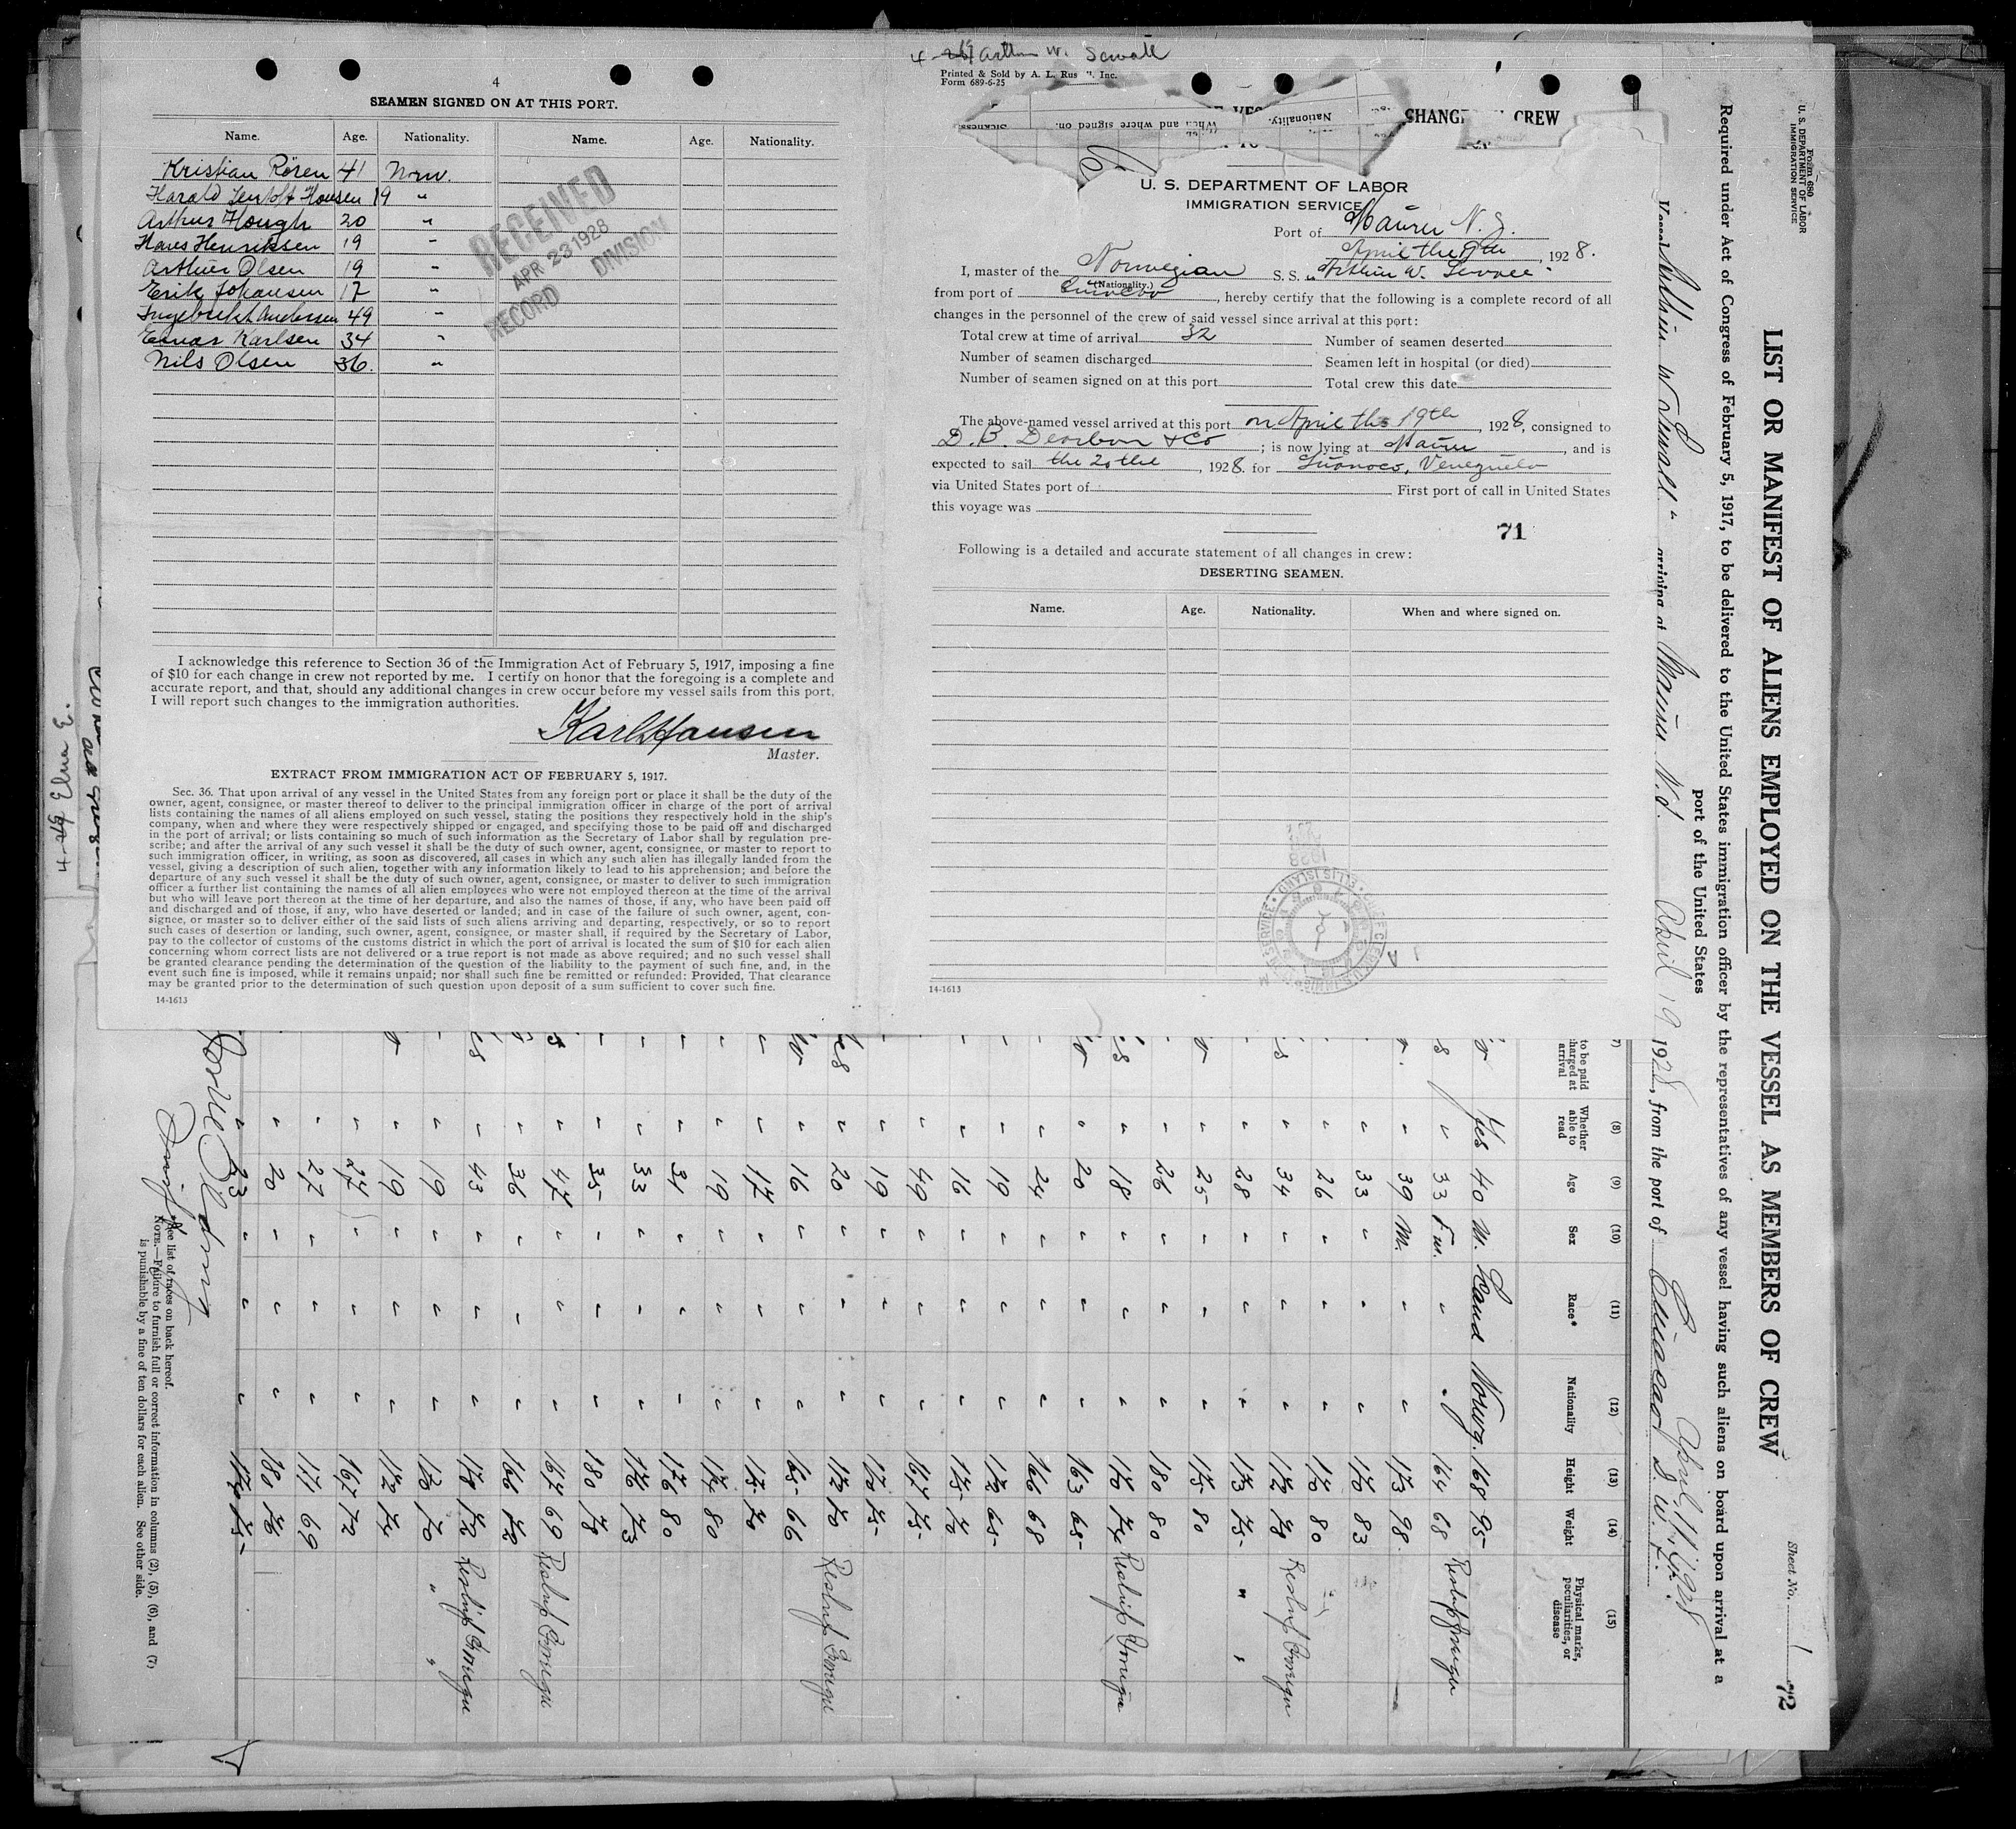 4
SEAMEN SIGNED ON AT THIS PORT.
Name. Age. Nationality. Name. Age. Nationality.
Kristian Rören 41 Norw.
Harald Hansen 19 "
Arthur Hough 20 "
Hans Henriksen 19 "
Arthur Olsen 19 "
Erik Johansen 17 "
Ingebrickt Andersen 49 "
Einar Karlsen 34 "
Nils Olsen 36. "
RECEIVED
APR 23 1928
RECORD DIVISION
I acknowledge this reference to Section 36 of the Immigration Act of February 5, 1917, imposing a fine
of $10 for each change in crew not reported by me. I certify on honor that the foregoing is a complete and
accurate report, and that, should any additional changes in crew occur before my vessel sails from this port,
I will report such changes to the immigration authorities.
Karl Hansen
Master.
EXTRACT FROM IMMIGRATION ACT OF FEBRUARY 5, 1917.
Sec. 36. That upon arrival of any vessel in the United States from any foreign port or place it shall be the duty of the
owner, agent, consignee, or master thereof to deliver to the principal immigration officer in charge of the port of arrival
lists containing the names of all aliens employed on such vessel, stating the positions they respectively hold in the ship's
company, when and where they were respectively shipped or engaged, and specifying those to be paid off and discharged
in the port of arrival; or lists containing so much of such information as the Secretary of Labor shall by regulation pre-
scribe; and after the arrival of any such vessel it shall be the duty of such owner, agent, consignee, or master to report to
such immigration officer, in writing, as soon as discovered, all cases in which any such alien has illegally landed from the
vessel, giving a description of such alien, together with any information likely to lead to his apprehension; and before the
departure of any such vessel it shall be the duty of such owner, agent, consignee, or master to deliver to such immigration
officer a further list containing the names of all alien employees who were not employed thereon at the time of the arrival
but who will leave port thereon at the time of her departure, and also the names of those, if any, who have been paid off
and discharged and of those, if any, who have deserted or landed; and in case of the failure of such owner, agent, con-
signee, or master so to deliver either of the said lists of such aliens arriving and departing, respectively, or so to report
such cases of desertion or landing, such owner, agent, consignee, or master shall, if required by the Secretary of Labor,
pay to the collector of customs of the customs district in which the port of arrival is located the sum of $10 for each alien
concerning whom correct lists are not delivered or a true report is not made as above required; and no such vessel shall
be granted clearance pending the determination of the question of the liability to the payment of such fine, and, in the
event such fine is imposed, while it remains unpaid; nor shall such fine be remitted or refunded: Provided, That clearance
may be granted prior to the determination of such question upon deposit of a sum sufficient to cover such fine.
14-1613
Arthur W. Sewall
Printed & Sold by A. L. Rus Inc.
Form 689-6-25
Nationality.
When and where signed on.
CREW
U. S. DEPARTMENT OF LABOR
IMMIGRATION SERVICE
Port of Maurer N. J.
April the 19th, 1928.
I, master of the Norwegian S. S. "Arthur W. Sewall"
(Nationality.)
from port of , hereby certify that the following is a complete record of all
changes in the personnel of the crew of said vessel since arrival at this port:
Total crew at time of arrival 32 Number of seamen deserted
Number of seamen discharged Seamen left in hospital (or died)
Number of seamen signed on at this port Total crew this date
The above-named vessel arrived at this port on April the 19th, 1928, consigned to
D. B. Dearborn & Co ; is now lying at Maurer, and is
expected to sail the 20the, 1928. for Guanoco, Venezuela
via United States port of First port of call in United States
this voyage was
71
Following is a detailed and accurate statement of all changes in crew:
DESERTING SEAMEN.
Name. Age. Nationality. When and where signed on.
ELLIS ISLAND
1928
14-1613
Form 680
U. S. DEPARTMENT OF LABOR
IMMIGRATION SERVICE
Sheet No. 1
72
LIST OR MANIFEST OF ALIENS EMPLOYED ON THE VESSEL AS MEMBERS OF CREW
Required under Act of Congress of February 5, 1917, to be delivered to the United States immigration officer by the representatives of any vessel having such aliens on board upon arrival at a
port of the United States
April 11, 1928
Vessel Arthur W Sewall." arriving at Maurer N.J. April 19 1928, from the port of Curacao D. W. I.
to be paid
charged at
arrival
(8) Whether able to read
(9) Age
(10) Sex
(11) Race*
(12) Nationality
(13) Height
(14) Weight
(15) Physical marks, peculiarities, or disease
Yes 40 M. Scand Norwg. 168 95
" 33 Fm. " " 164 68
" 39 M. " " 173 98
" 33 " " " 170 83
" 26 " " " 170 80
" 34 " " " 172 78
" 28 " " " 173 75
" 25 " " " 175 80
" 26 " " " 180 80
" 18 " " " 170 74
" 20 " " " 163 65
" 24 " " " 166 68
" 19 " " " 172 65
" 16 " " " 175 70
" 49 " " " 167 75
" 19 " " " 170 75
" 20 " " " 172 70
" 16 " " " 165 66
" 17 " " " 175 70
" 19 " " " 174 80
" 31 " " " 176 80
" 33 " " " 176 73
" 35 " " " 180 78
" 47 " " " 167 69
" 36 " " " 166 72
" 43 " " " 178 72
" 19 " " " 170 70
" 19 " " " 172 74
" 27 " " " 167 72
" 27 " " " 171 69
" 20 " " " 180 76
" 23 " " " 174 75
*See list of races on back hereof.
NOTE.—Failure to furnish full or correct information in columns (2), (5), (6), and (7)
is punishable by a fine of ten dollars for each alien. See other side.